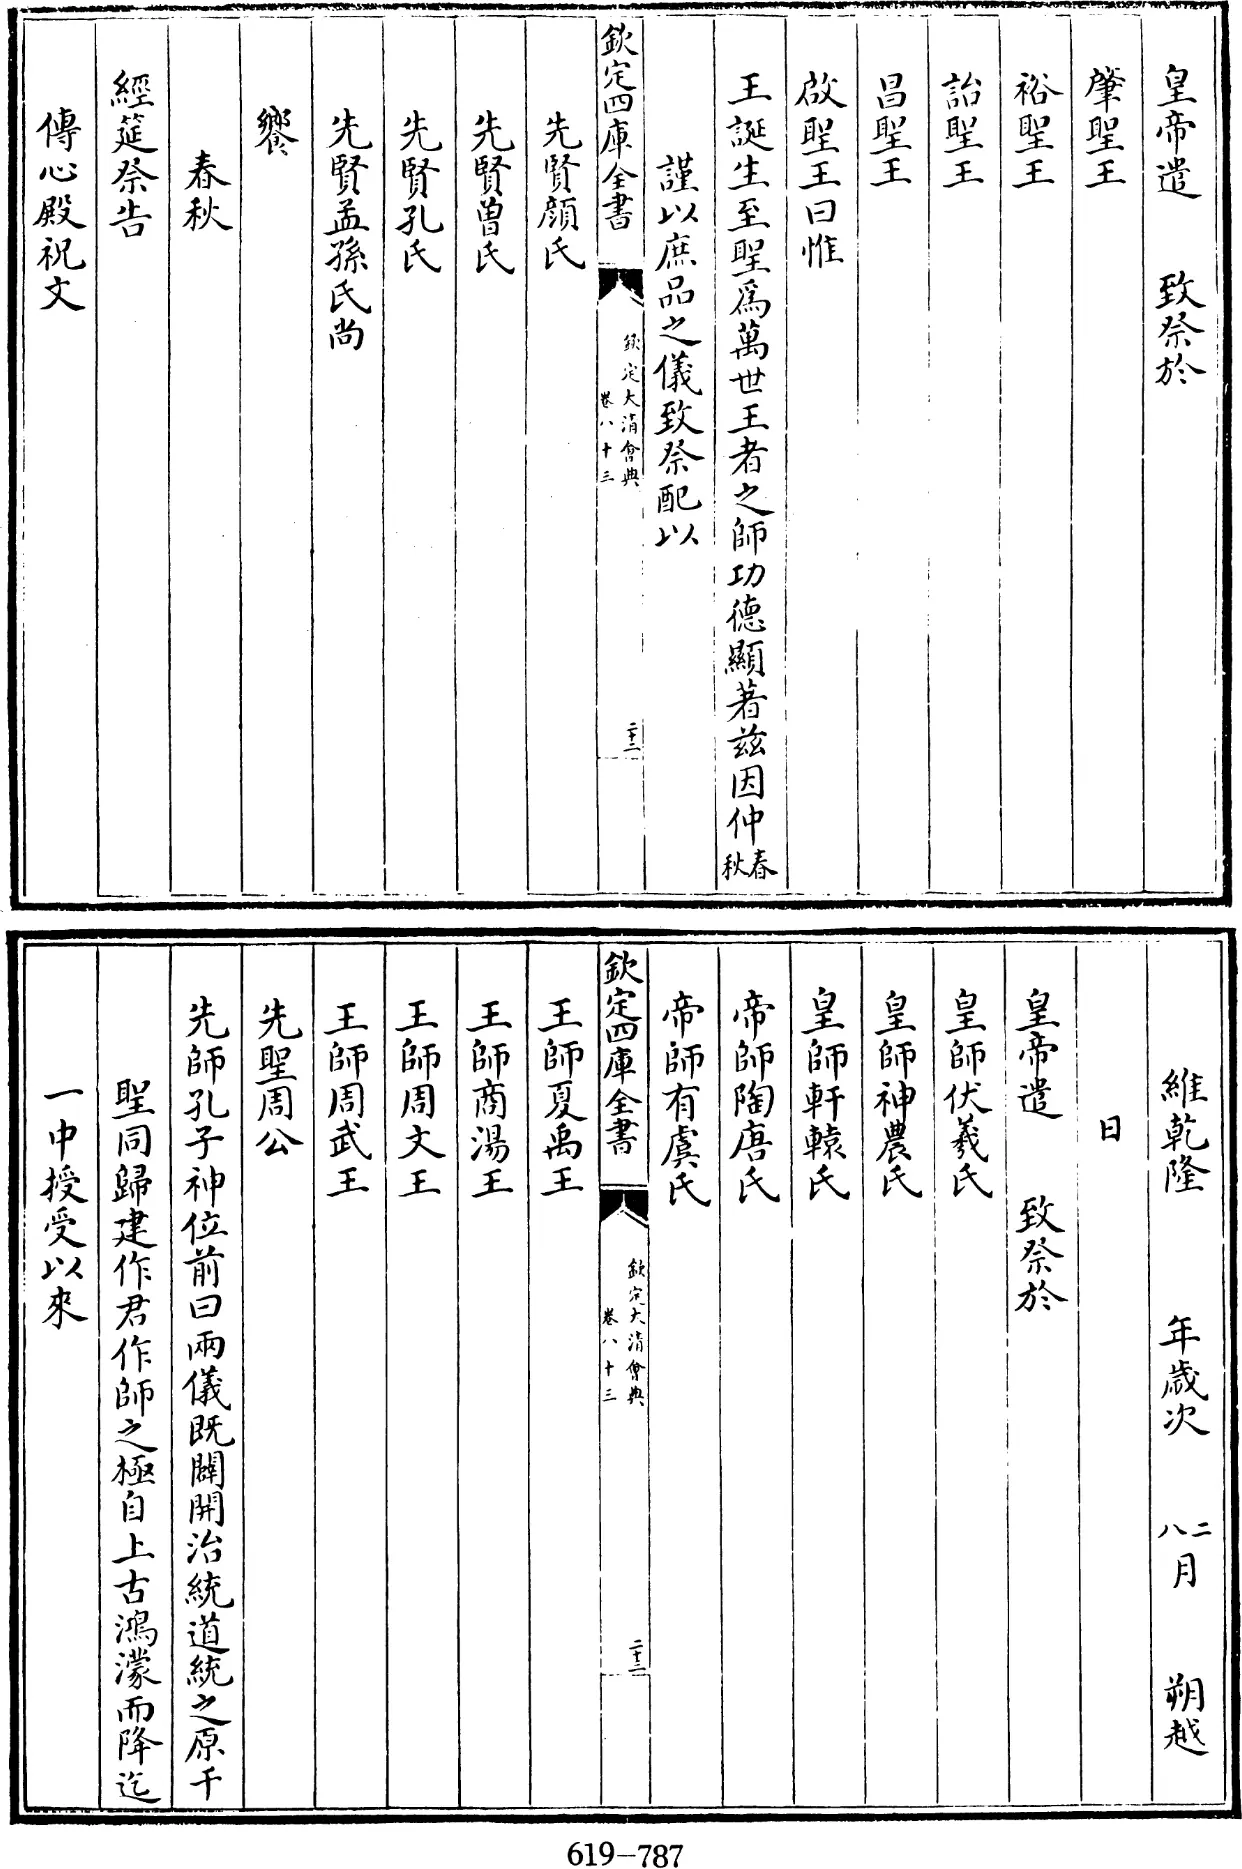 皇帝遣　致祭於
肇聖王
裕聖王
詒聖王
昌聖王
啟聖王曰惟
王誕生至聖爲萬世王者之師功德顯著茲因仲春秋
謹以庶品之儀致祭配以
欽定四庫全書
欽定大清會典
卷八十三
二十二
先賢顏氏
先賢曾氏
先賢孔氏
先賢孟孫氏尚
饗
春秋
經筵祭告
傳心殿祝文
維乾隆　年歲次　二八月　朔越
日
皇帝遣　致祭於
皇師伏羲氏
皇師神農氏
皇師軒轅氏
帝師陶唐氏
帝師有虞氏
欽定四庫全書
欽定大清會典
卷八十三
二十三
王師夏禹王
王師商湯王
王師周文王
王師周武王
先聖周公
先師孔子神位前曰兩儀既闢開治統道統之原千
聖同歸建作君作師之極自上古鴻濛而降迄
一中授受以來
619-787